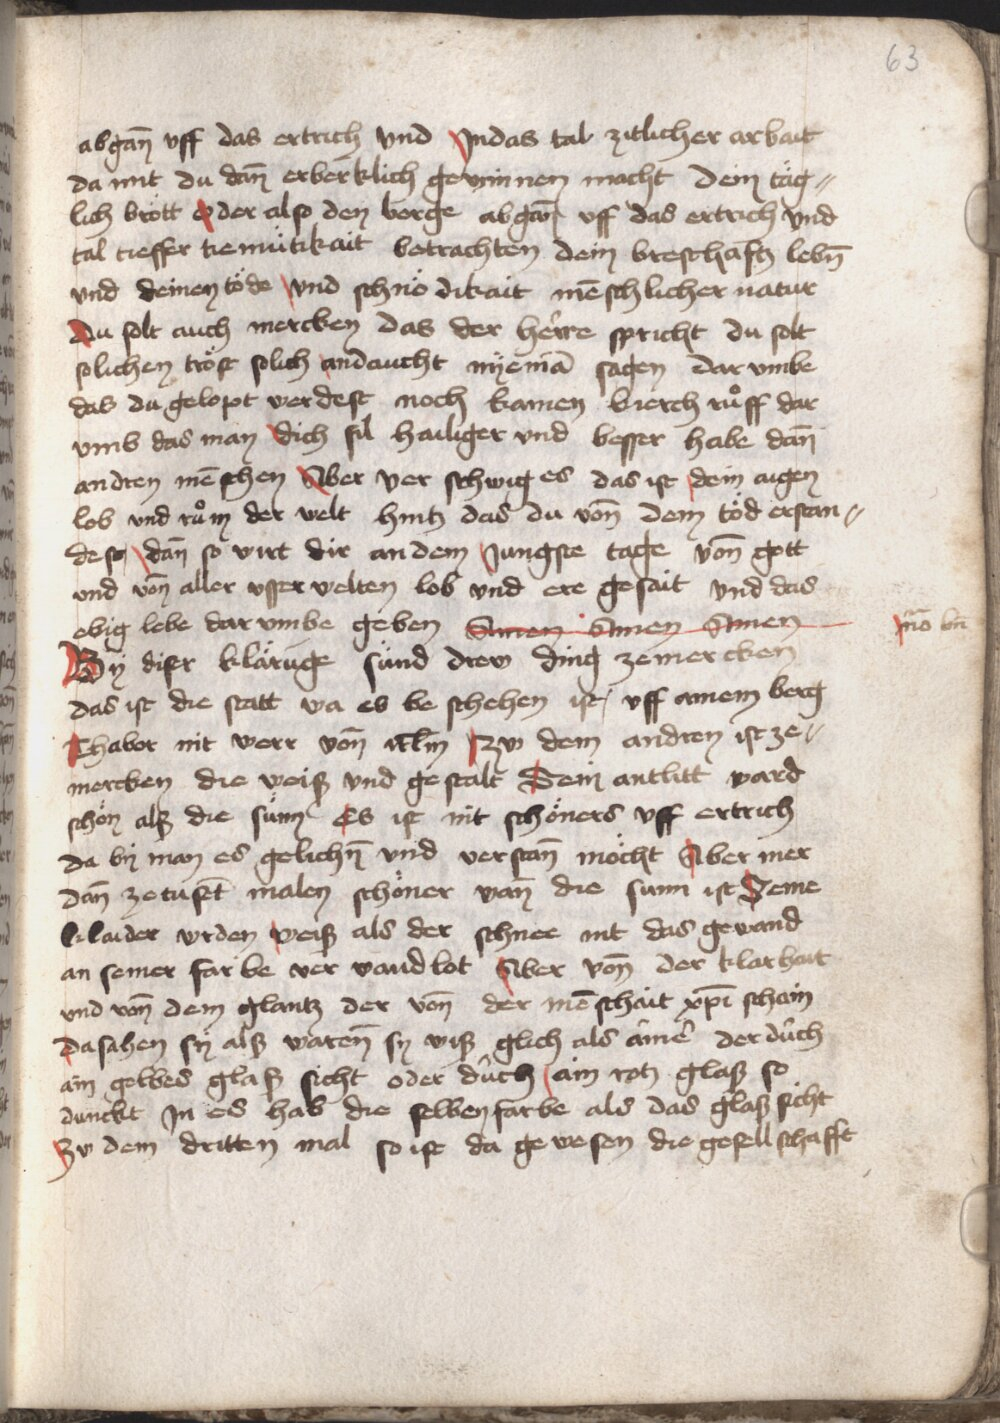 63
abgan̄ vff das ertrich vnd Jn das tal zitlicher arbait
da mit du dan̄ erberklich gewinnen macht dein täg〃
lich brott oder also den berge abgan̄ vff das ertrich vnd
tal tieffer tiemütikait betrachten dein breschafftz lebn̄
vnd deinen töde vnd schnödikait mēschlicher natur
Du solt auch mercken das der herre spricht du solt
solichen tröst solich andaucht nyemā sagen dar vmbe
das du gelopt werdest noch kamen bierch růff dar
vmb das man dich fil hailiger vnd besser habe dan̄
andren mēschen Aber ver schwig es das ist dein aigen
lob vnd rům der welt hintz das du von̄ dem töd erstan〃
dest dan̄ so wirt dir an dem Jungste tage von̄ gott
vnd von̄ aller vsser welten lob vnd ere gesait vnd das
ebig lebe dar vmbe geben Amen Amen Amen
By diser klärunge sind drew ding ze mercken
das ist die statt wa es be schehen ist vff ainem berg
Thabor nit werr von̄ irlm̄ Zu dem andren ist ze〃
mercken die weiß vnd gestalt Sein antlitt ward
schön alß die sunn Es ist nit schöners vff ertrich
da by man es gelichn̄ vnd verstan̄ möcht Aber mer
dan̄ ze tusent malen schöner wan̄ die sunn ist Seine
klaider wrden weiß als der schnee nit das gewand
an seiner farbe ver wandlot Aber von̄ der klarhait
vnd von̄ dem glantz der von̄ der mēschait xp̄i schain
Da sahen sy alß waren̄ sy wiß glich als aine der durch
ain gelbes glaß sicht oder durch ain rotz glaß so
dunckt Jn es hab die selben farbe als das glaß sicht
Zu dem dritten mal so ist da gewesen die gesellschafft